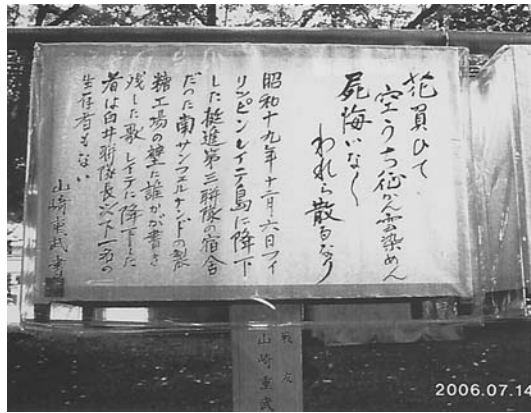 花負ひて
空うち征かん雲染めん
屍悔いなく
われら散るなり
昭和十九年十二月六日フィ
リンピンレイテ島に降下
した挺進第三聯隊の宿舎
だった南サンフェルナンドの製
糖工場の壁に誰かが書き
残した歌 レイテに降下した
者は白井聯隊長以下一名の
生存者もない
山崎重武 書
戦友
山崎重武
2006.07.14